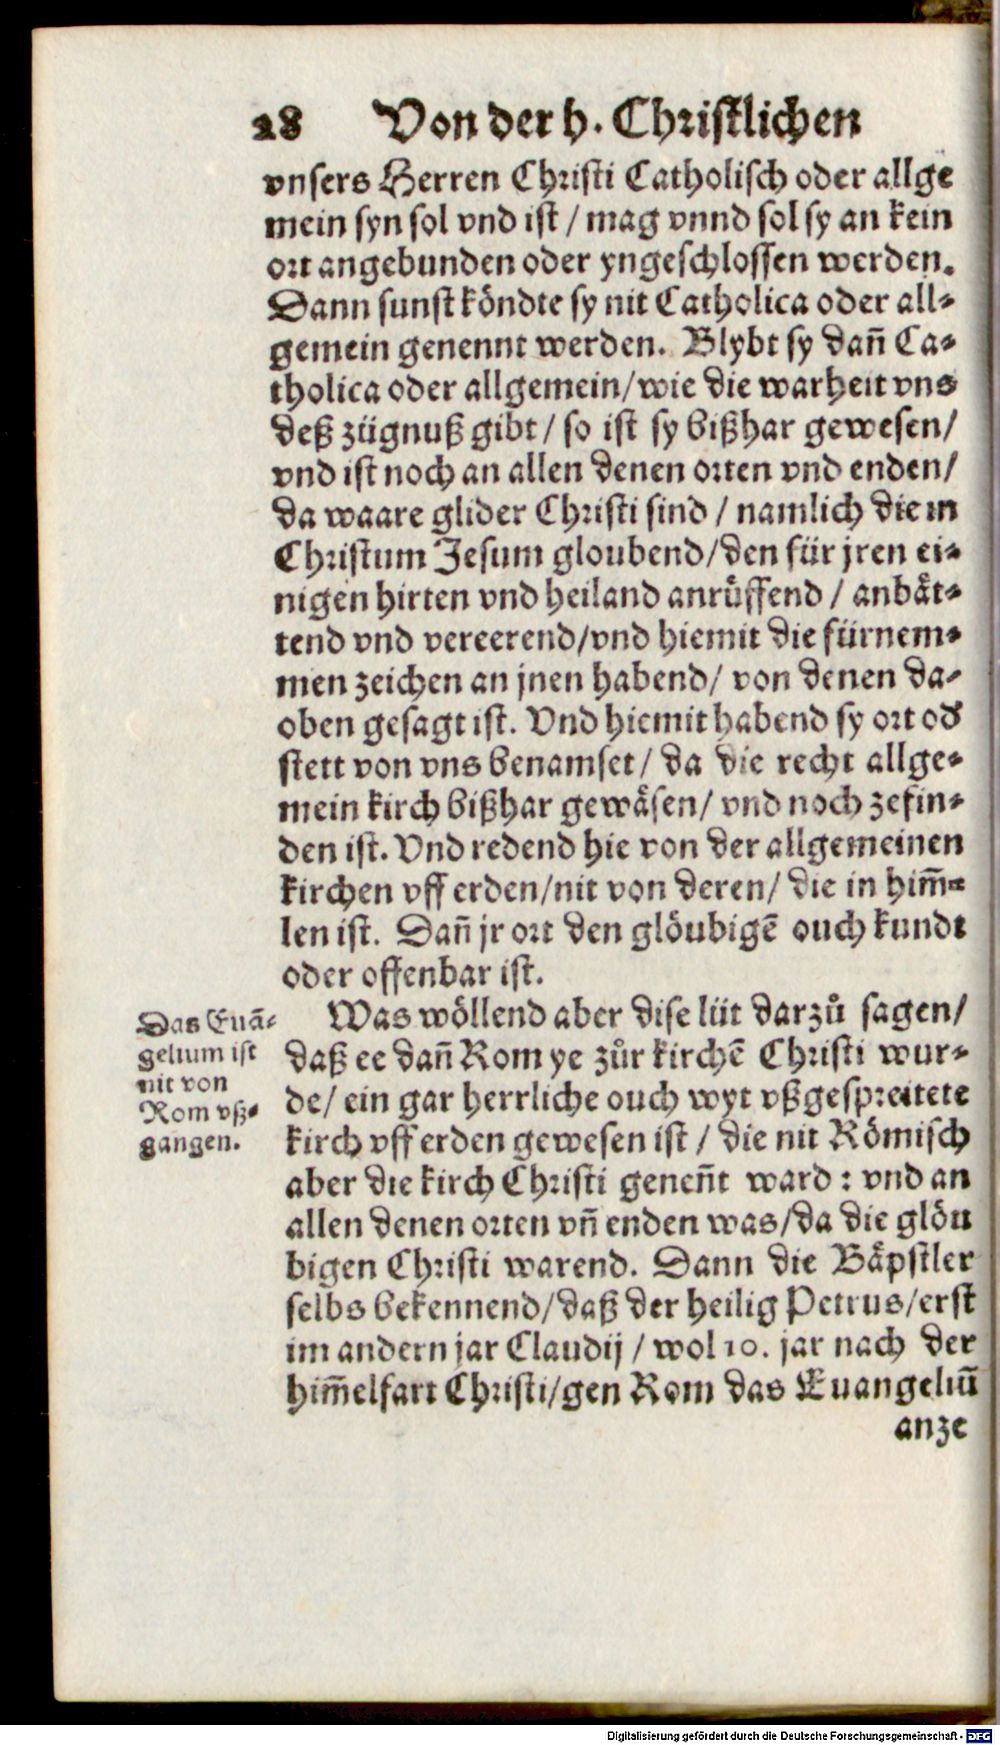 28 Von der h. Christlichen
vnsers Herren Christi Catholisch oder allge
mein syn sol vnd ist / mag vnnd sol sy an kein
ort angebunden oder yngeschlossen werden.
Dann sunst köndte sy nit Catholica oder all-
gemein genennt werden. Blybt sy dañ Ca-
tholica oder allgemein/wie die warheit vns
deß zügnuß gibt / so ist sy bißhar gewesen/
vnd ist noch an allen denen orten vnd enden/
da waare glider Christi sind / namlich die in
Christum Jesum gloubend/den für jren ei-
nigen hirten vnd heiland anrüffend / anbät-
tend vnd vereerend/vnd hiemit die fürnem-
men zeichen an jnen habend/ von denen da-
oben gesagt ist. Vnd hiemit habend sy ort od'
stett von vns benamset/ da die recht allge-
mein kirch bißhar gewäsen/ vnd noch zefin-
den ist. Vnd redend hie von der allgemeinen
kirchen vff erden/nit von deren/ die in him̄-
len ist. Dañ jr ort den glöubigē ouch kundt
oder offenbar ist.
Was wöllend aber dise lüt darzů sagen/
daß ee dañ Rom ye zůr kirchē Christi wur-
de/ ein gar herrliche ouch wyt vßgespreitete
kirch vff erden gewesen ist / die nit Römisch
aber die kirch Christi geneñt ward : vnd an
allen denen orten vñ enden was/da die glöu
bigen Christi warend. Dann die Bäpstler
selbs bekennend/daß der heilig Petrus/erst
im andern jar Claudij / wol 10. jar nach der
him̄elfart Christi/gen Rom das Euangeliū
anze
Das Euā-
gelium ist
nit von
Rom vß-
gangen.
Digitalisierung gefördert durch die Deutsche Forschungsgemeinschaft - DFG